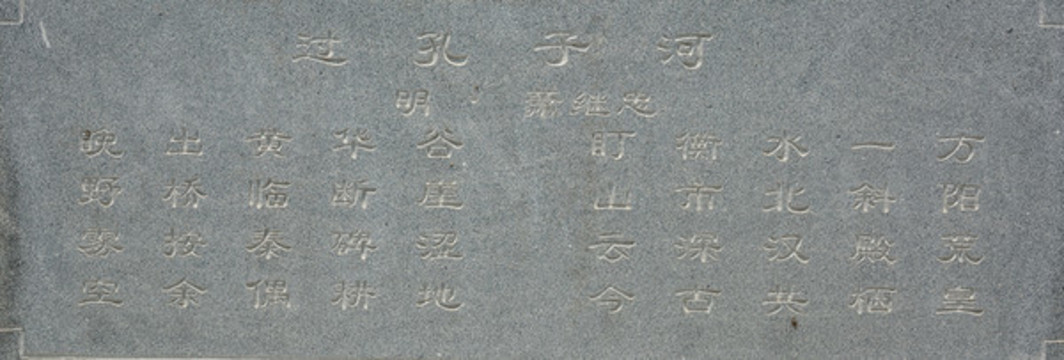 过孔子河
明 萧继忠
晚出黄华谷 盯衡水一方
野桥临断崖 山市北斜阳
雾按泰碑涩 云深汉殿荒
空余偶耕地 今古共栖皇